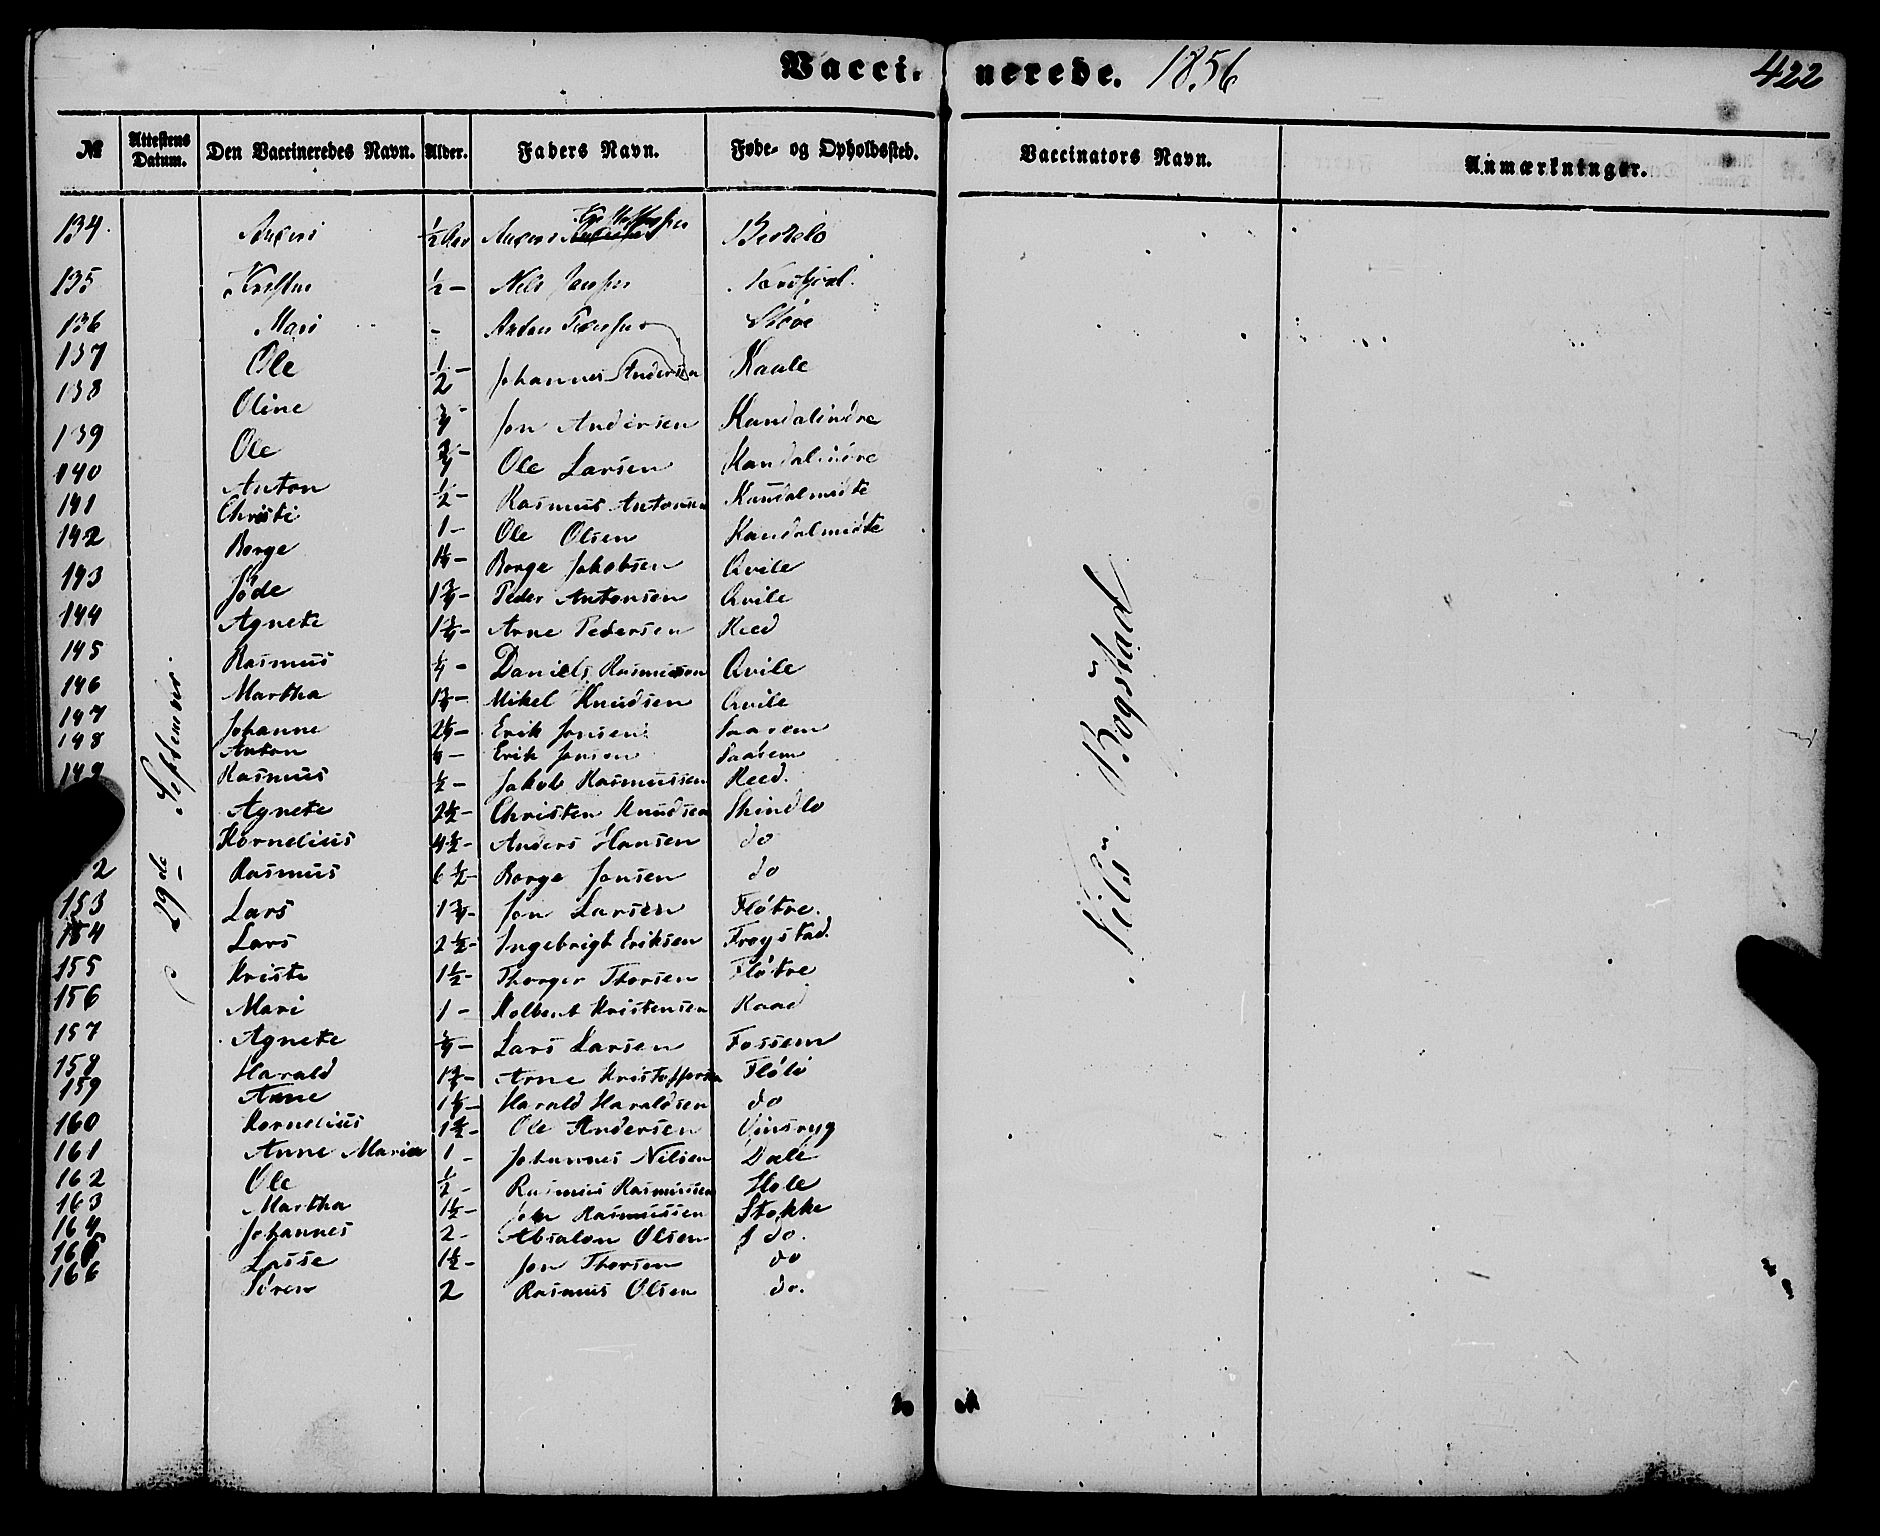 Vacci- nerede. 1856 422
№ Attestens Datum. Den Vaccineredes Navn. Alder. Faders Navn. Føde- og Opholdssted. Vaccinators Navn. Anmærkninger.
29de September
Nils Bogstad
134. Anders ½ Aar Anders
135 ½ – Nils
136 Mari –
137 Ole ½ – Johannes Andersen
138 Oline ¾ – Jon Andersen Kandalindre
139 Ole ¾ – Ole Larsen Kandalindre
140 Anton ½ – Rasmus Antonsen Kandalmidte
141 Christi 1 – Ole Olsen Kandalmidte
142 Borge Borge Jakobsen Qvile
143 Jøde 1¾ – Peder Antonsen Qvile
144 Agnete 1¾ – Arne Pedersen Reed
145 Rasmus Daniels Rasmussen Qvile
146 Martha Mikel Knudsen Qvile
147 Johanne Erik Jonsen
148 Anton Erik Jonsen
149 Rasmus ½ – Jakob Rasmussen Reed.
Agnete 2½ – Christen Knudsen Skindlo
Kornelius 4½ – Anders Hansen do
2 Rasmus 6½ – Borge Jonsen do
153 Lars 1¾ – Jon Larsen Fløtre.
154 Lars 2½ – Ingebrigt Eriksen Froystad.
155 Kriste 1½ – Thorger Thorsen Fløtre
156 Mari 1 – Kolbent Kristensen Raad
157 Agnete Lars Larsen Fossem
158 Harald Arne Kristoffersen Fløló
159 Anne Harald Haraldsen do
160 Kornelius 1½ – Ole Andersen Vinsryg
161 Anne Maria 1 – Johannes Nilsen Dale
162 Ole ½ – Rasmus Rasmussen Hole
163 Martha 1½ – John Rasmussen Stokke
164 Johannes 2 – Absalon Olsen do.
165 Lasse 1½ – Jon Thorsen do
166 Sören 2 Rasmus Olsen do.